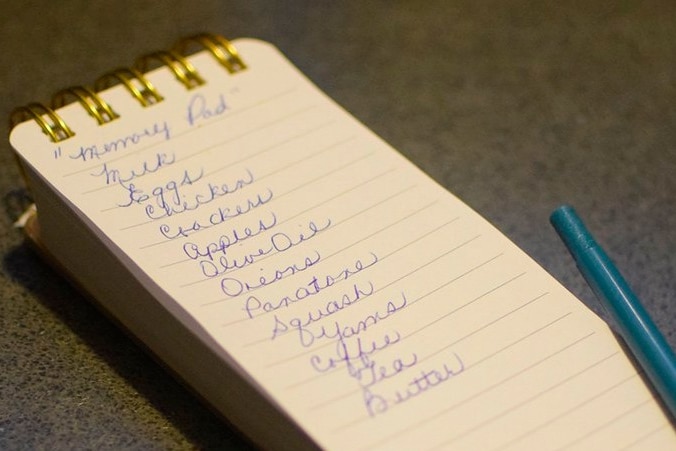 "Memory Pad"
Milk
Eggs
Chicken
Crackers
Apples
Olive Oil
Onions
Panatone
Squash
Yams
Coffee
Tea
Butter